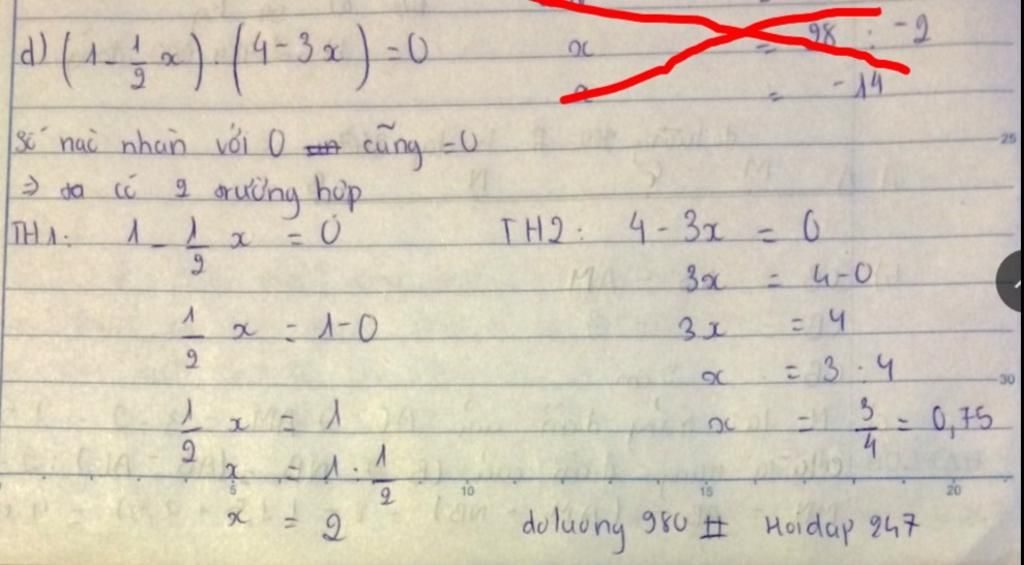 d) (1 - 1/2 x) . (4 - 3x) = 0
x = 98 : -2
= -14
Số nào nhân với 0 cũng = 0
=> ta có 2 trường hợp
TH1: 1 - 1/2 x = 0
1/2 x = 1-0
1/2 x = 1
x = 1 : 1/2
x = 2
TH2: 4 - 3x = 0
3x = 4-0
3x = 4
x = 3 : 4
x = 3/4 = 0,75
doluong 980 II Hoidap 247
25
30
5 10 15 20